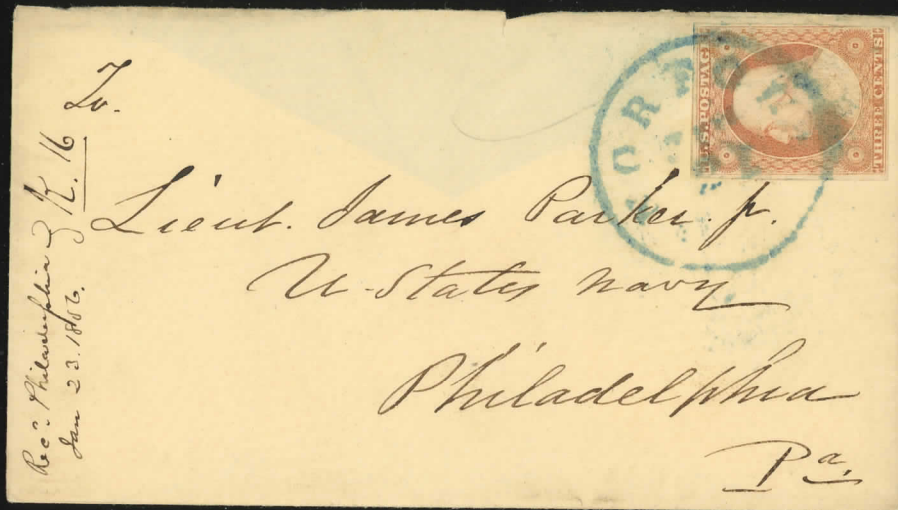 To.
Lieut. James Parker Jr.
U. States Navy
Philadelphia
Pa.
Rec.d Philadelphia
Jan 23. 1856.
K. 16
U.S. POSTAGE
THREE CENTS
NORFOLK